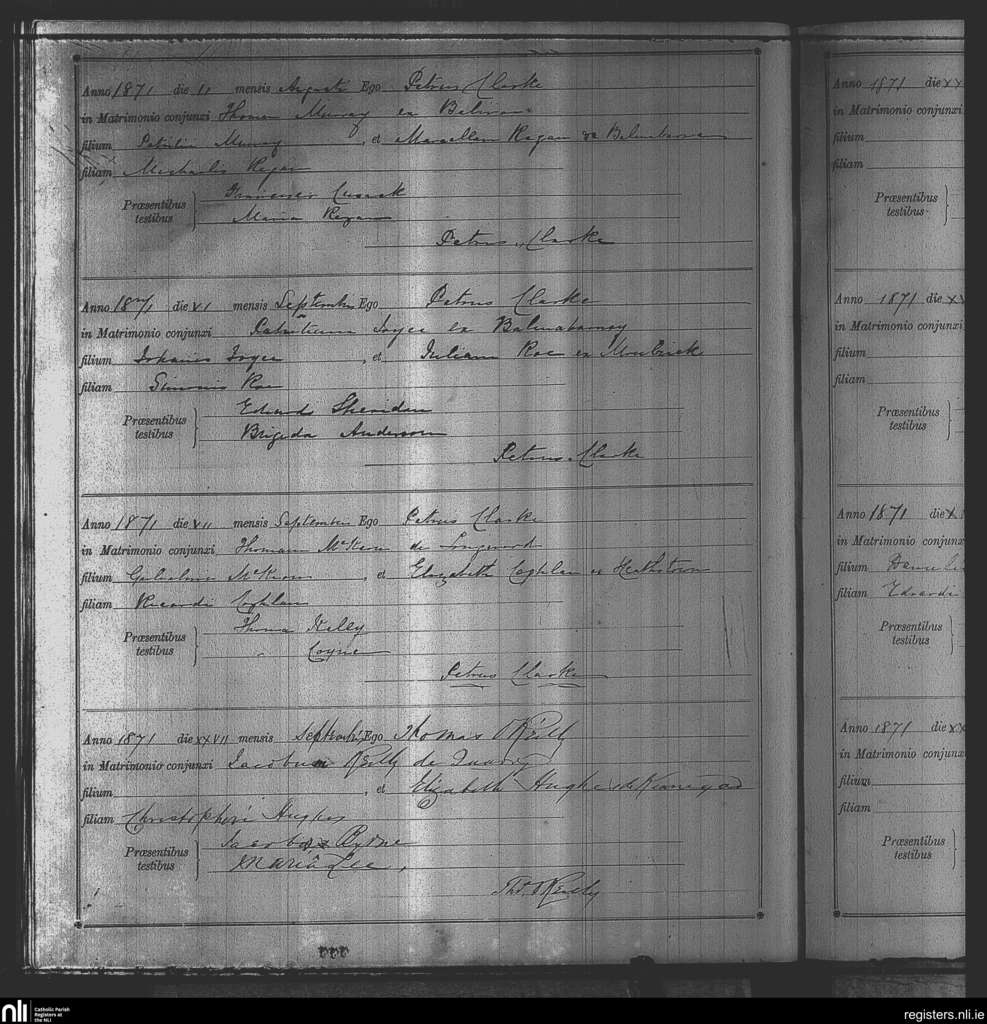 Anno 1871 die II mensis Augusti Ego Petrus Clarke
in Matrimonio conjunxi Thomam Murray ex
filium Patritii Murray, et Marcellam Regan ex
filiam Michaelis Regan
Præsentibus testibus Franciscus Cusack
Maria Regan
Petrus Clarke
Anno 1871 die VI mensis Septembris Ego Petrus Clarke
in Matrimonio conjunxi Patritium Joyce ex Balnabarney
filium Johannis Joyce, et Juliam Roe ex
filiam Simonis Roe
Præsentibus testibus Edward Sheridan
Brigida Anderson
Petrus Clarke
Anno 1871 die VII mensis Septembris Ego Petrus Clarke
in Matrimonio conjunxi Thomam McKeon de Longwood
filium Gulielmi McKeon, et Elizabeth Coghlan ex Heathstown
filiam Ricardi Coghlan
Præsentibus testibus Thoma Kelly
" Coyne
Petrus Clarke
Anno 1871 die XXVII mensis Septembris Ego Thomas O'Reilly
in Matrimonio conjunxi Jacobum Reilly de
filium , et Elizabeth Hughes de Kinnegad
filiam Christophori Hughes
Præsentibus testibus Jacobus
Maria Lee
Ths. O'Reilly
Anno 1871 die XX
in Matrimonio conjunx
filium
filiam
Præsentibus
testibus
Anno 1871 die XV
in Matrimonio conjunxi
filium
filiam
Præsentibus
testibus
Anno 1871 die X
in Matrimonio conjunxi
filium
filiam Edvardi
Præsentibus
testibus
Anno 1871 die XX
in Matrimonio conjunxi
filium
filiam
Præsentibus
testibus
nli Catholic Parish Registers at the NLI
registers.nli.ie